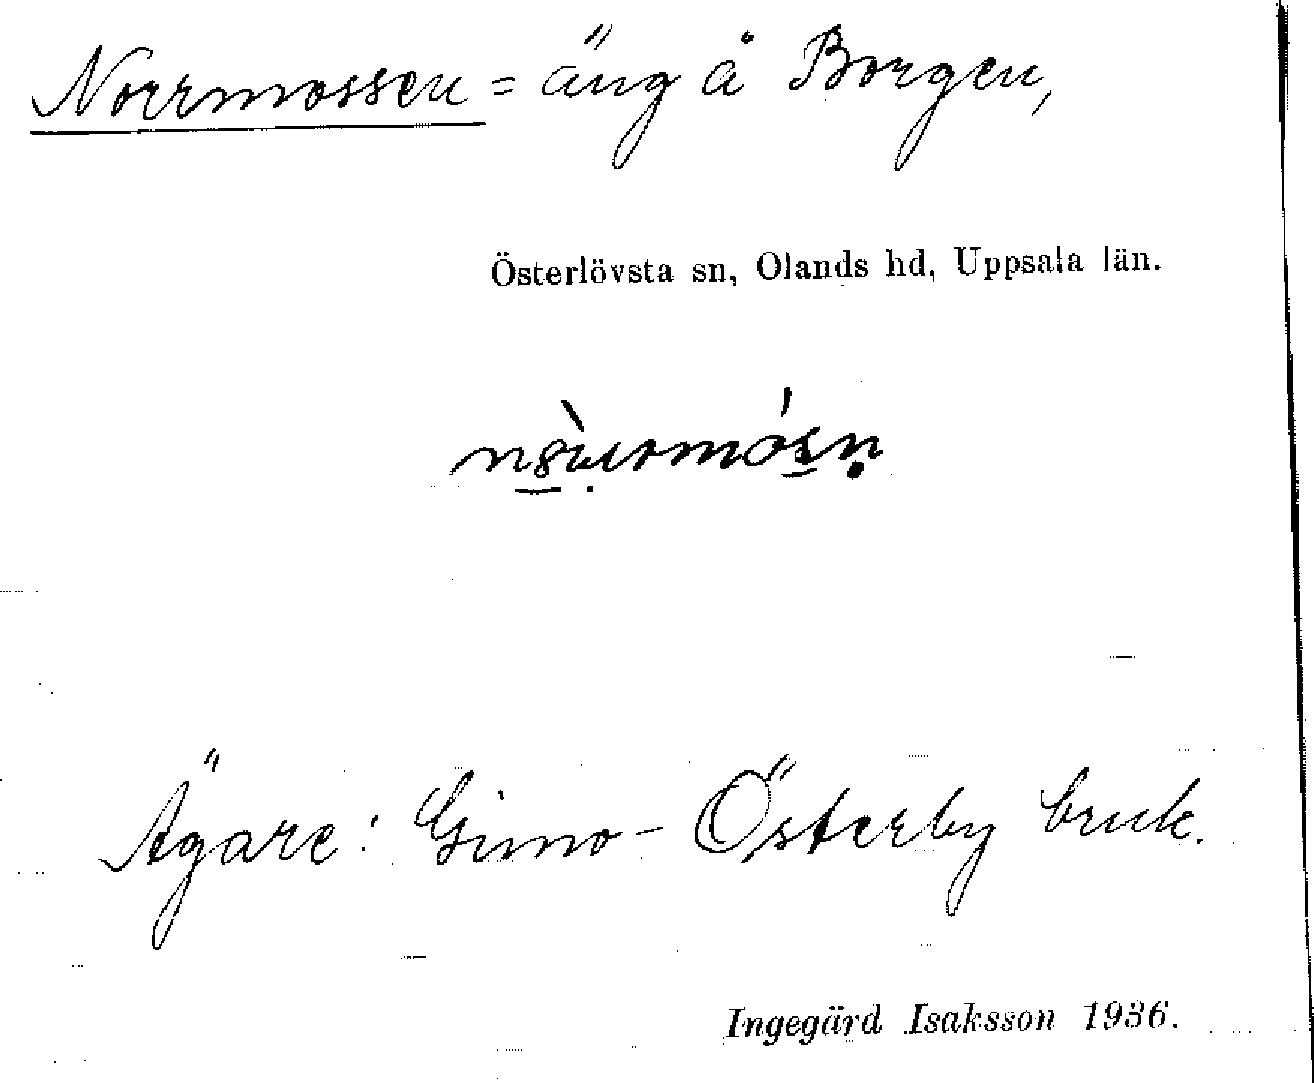 Norrmossen = äng å Borgen,
Österlövsta sn, Olands hd, Uppsala län.
Ägare: Gimo - Österby bruk.
Ingegärd Isaksson 1936.